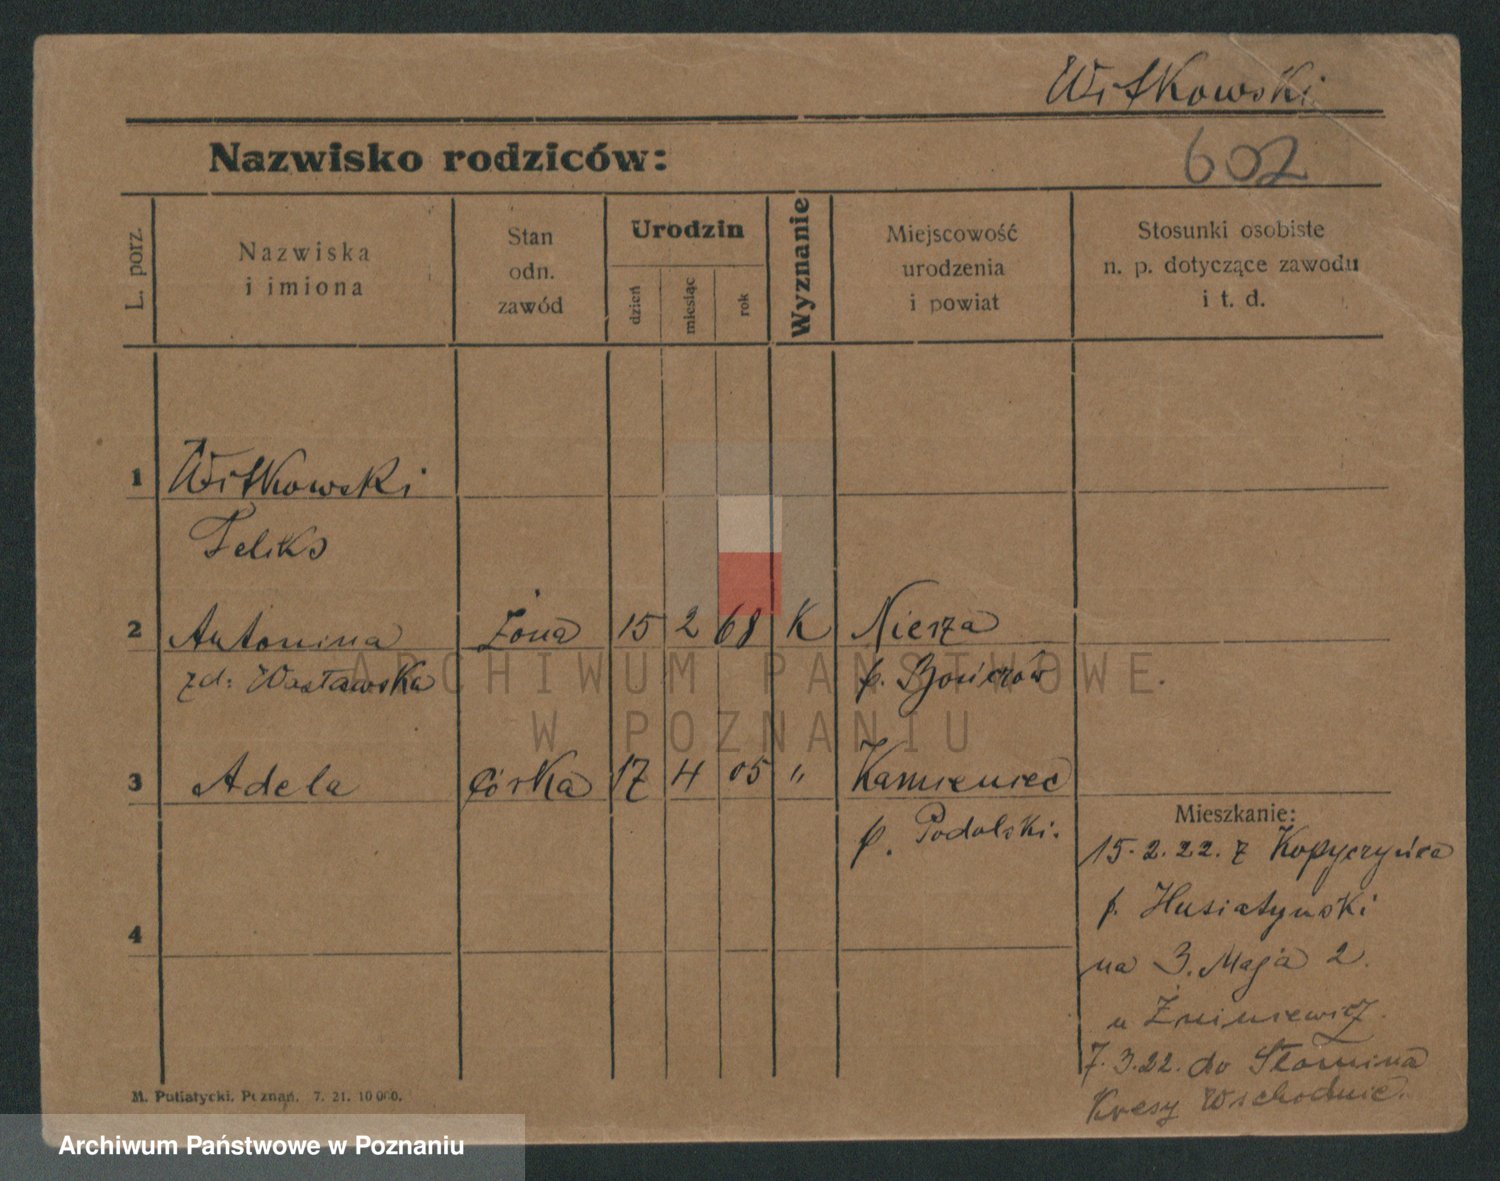 Witkowski
Nazwisko rodziców:
602
L. porz.
Nazwiska
i imiona
Stan
odn.
zawód
Urodzin
dzień
miesiąc
rok
Wyznanie
Miejscowość
urodzenia
i powiat
Stosunki osobiste
n. p. dotyczące zawodu
i t. d.
1 Witkowski
Feliks
2 Antonina Żona 15 2 68 K Niesza
zd: Wastawska p.
3 Adela Córka 17 4 05 " Kamieniec
p. Podolski.
4
Mieszkanie:
15.2.22. z Kopyczyńca
p. Husiatynski
na 3. Maja 2.
u
7.3.22. do Słonima
Kresy Wschodnie.
M. Putiatycki, Poznań. 7. 21. 10 000.
ARCHIWUM PAŃSTWOWE
W POZNANIU
Archiwum Państwowe w Poznaniu